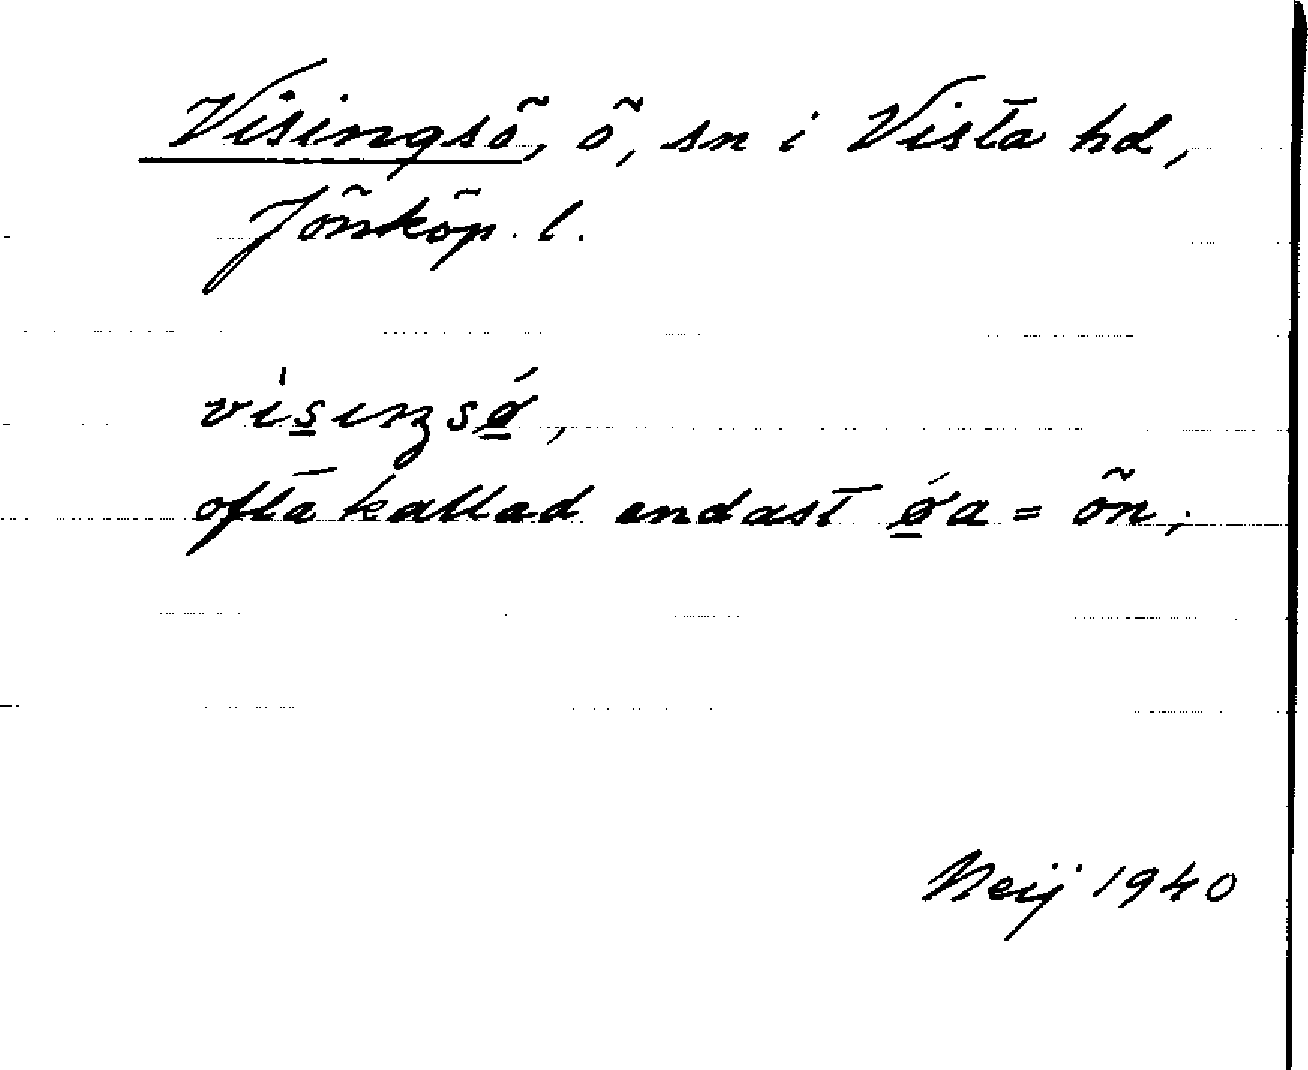 Visingsö, ö, sn i Vista hd,
Jönköp. l.
vi̍s̲ıŋsǿ̲,
ofta kallad endast ǿ̲a = ön.
Neij 1940